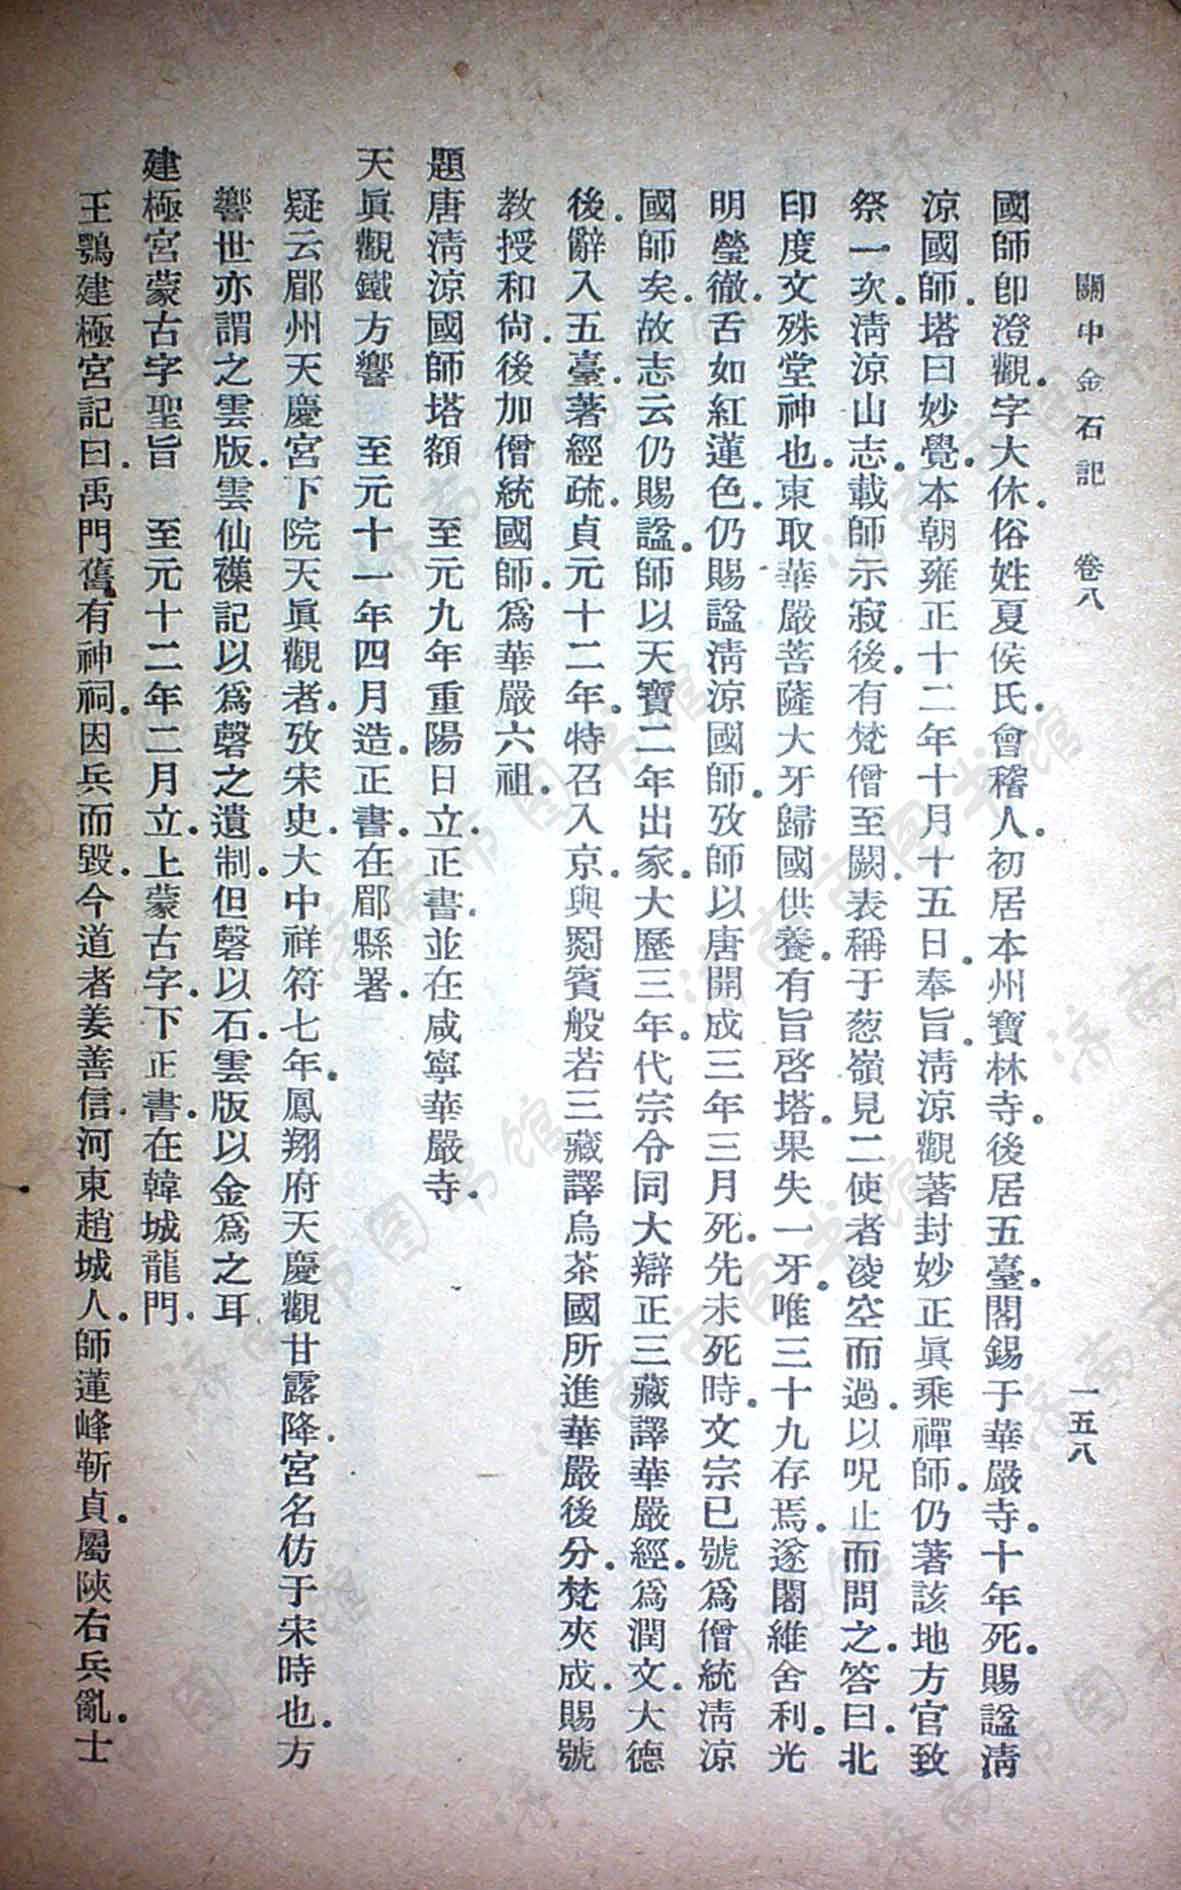 關中金石記 卷八 一五八
國師卽澄觀。字大休。俗姓夏侯氏。會稽人。初居本州寶林寺。後居五臺。閣錫于華嚴寺。十年死。賜諡淸
涼國師。塔曰妙覺。本朝雍正十二年十月十五日。奉旨。淸涼觀著封妙正眞乘禪師。仍著該地方官致
祭一次。淸涼山志。載師示寂後。有梵僧至闕。表稱于葱嶺見二使者凌空而過。以呪止而問之。答曰。北
印度文殊堂神也。東取華嚴菩薩大牙歸國供養。有旨啓塔。果失一牙。唯三十九存焉。遂闍維舍利。光
明瑩徹。舌如紅蓮色。仍賜諡淸涼國師。攷師以唐開成三年三月死。先未死時。文宗已號爲僧統淸涼
國師矣。故志云仍賜諡。師以天寶二年出家。大歷三年。代宗令同大辯正三藏譯華嚴經。爲潤文。大德
後。辭入五臺。著經疏。貞元十二年。特召入京。與罽賓般若三藏譯烏茶國所進華嚴後分。梵夾成。賜號
教授和尙。後加僧統國師。爲華嚴六祖。
題唐淸涼國師塔額 至元九年重陽日立。正書。並在咸寧華嚴寺。
天眞觀鐵方響 至元十一年四月造。正書。在郿縣署。
疑云郿州天慶宮下院天眞觀者。攷宋史。大中祥符七年。鳳翔府天慶觀甘露降。宮名仿于宋時也。方
響世亦謂之雲版。雲仙襍記以爲磬之遺制。但磬以石。雲版以金爲之耳。
建極宮蒙古字聖旨 至元十二年二月立。上蒙古字。下正書。在韓城龍門。
王鶚建極宮記曰。禹門舊有神祠。因兵而毀。今道者姜善信。河東趙城人。師蓮峰靳貞。屬陝右兵亂。士